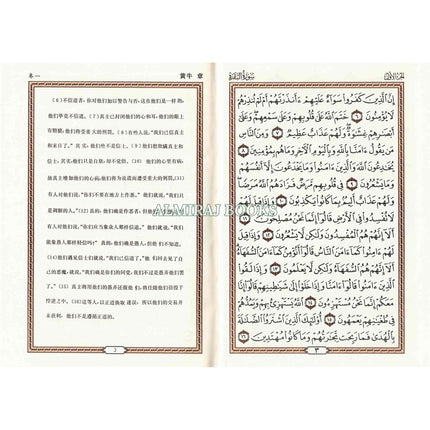 卷一
黄牛 章
(6)不信道者,你对他们加以警告与否,这在他们是一样的,
他们毕竟不信道。(7)真主已封闭他们的心和耳,他们的眼上
有翳膜;他们将受重大的刑罚。(8)有些人说:“我们已信真主
和末日了。”其实,他们绝不是信士。
(10)他们的心里有病,
故真主增加他们的心病;他们将为说谎而遭受重大的刑罚。(11)
有人对他们说:“你们不要在地方上作恶。”他们就说:“我们只
是调解的人。”(12)真的,他们确是作恶者,但他们不觉悟。(13)
有人对他们说:
他们就说:“我们
能象愚人那样轻信吗?”真的,他们确是愚人,但他们不知道。
(14)他们遇见信士们就说:“我们已信道了。”他们回去见了自
己的恶魔,就说:“我们确是你们的同党,我们不过是愚弄他们罢
了。”(15)真主将用他们的愚弄还报他们,将任随他们彷徨于
悖逆之中。(16)这等人,以正道换取迷误,所以他们的交易并
未获利,他们不是遵循正道的。
3
الجزء الأول
سورة البقرة
إِنَّ الَّذِينَ كَفَرُوا سَوَاءٌ عَلَيْهِمْ ءَأَنذَرْتَهُمْ أَمْ لَمْ تُنذِرْهُمْ
لَا يُؤْمِنُونَ ٦ خَتَمَ اللَّهُ عَلَىٰ قُلُوبِهِمْ وَعَلَىٰ سَمْعِهِمْ وَعَلَىٰ
أَبْصَٰرِهِمْ غِشَٰوَةٌ وَلَهُمْ عَذَابٌ عَظِيمٌ ٧ وَمِنَ النَّاسِ
مَن يَقُولُ ءَامَنَّا بِاللَّهِ وَبِالْيَوْمِ الْءَاخِرِ وَمَا هُم بِمُؤْمِنِينَ ٨
يُخَٰدِعُونَ اللَّهَ وَالَّذِينَ ءَامَنُوا وَمَا يَخْدَعُونَ إِلَّا أَنفُسَهُمْ
وَمَا يَشْعُرُونَ ٩ فِي قُلُوبِهِم مَّرَضٌ فَزَادَهُمُ اللَّهُ مَرَضًا
وَلَهُمْ عَذَابٌ أَلِيمٌ بِمَا كَانُوا يَكْذِبُونَ ١٠ وَإِذَا قِيلَ لَهُمْ
لَا تُفْسِدُوا فِي الْأَرْضِ قَالُوا إِنَّمَا نَحْنُ مُصْلِحُونَ ١١
أَلَا إِنَّهُمْ هُمُ الْمُفْسِدُونَ وَلَٰكِن لَّا يَشْعُرُونَ ١٢ وَإِذَا قِيلَ
لَهُمْ ءَامِنُوا كَمَا ءَامَنَ النَّاسُ قَالُوا أَنُؤْمِنُ كَمَا ءَامَنَ السُّفَهَاءُ
أَلَا إِنَّهُمْ هُمُ السُّفَهَاءُ وَلَٰكِن لَّا يَعْلَمُونَ ١٣ وَإِذَا لَقُوا
الَّذِينَ ءَامَنُوا قَالُوا ءَامَنَّا وَإِذَا خَلَوْا إِلَىٰ شَيَٰطِينِهِمْ قَالُوا إِنَّا
مَعَكُمْ إِنَّمَا نَحْنُ مُسْتَهْزِءُونَ ١٤ اللَّهُ يَسْتَهْزِئُ بِهِمْ وَيَمُدُّهُمْ
فِي طُغْيَٰنِهِمْ يَعْمَهُونَ ١٥ أُولَٰئِكَ الَّذِينَ اشْتَرَوُا الضَّلَٰلَةَ
بِالْهُدَىٰ فَمَا رَبِحَت تِّجَٰرَتُهُمْ وَمَا كَانُوا مُهْتَدِينَ ١٦
٣
ALMIRAJ BOOKS